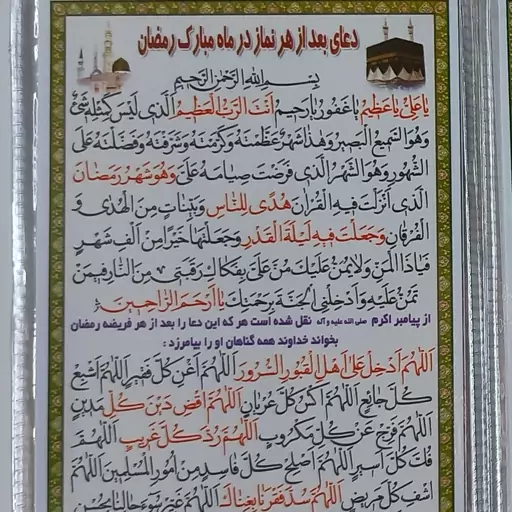 دعای بعد از هر نماز در ماه مبارک رمضان
بِسْمِ اللهِ الرَّحْمٰنِ الرَّحیمِ
یا عَلِیُّ یا عَظیمُ یا غَفُورُ یا رَحیمُ اَنْتَ الرَّبُّ الْعَظیمُ الَّذی لَیْسَ کَمِثْلِهِ شَیْءٌ
وَهُوَ السَّمیعُ الْبَصیرُ وَهٰذا شَهْرٌ عَظَّمْتَهُ وَکَرَّمْتَهُ وَشَرَّفْتَهُ وَفَضَّلْتَهُ عَلَی
الشُّهُورِ وَهُوَ الشَّهْرُ الَّذی فَرَضْتَ صِیامَهُ عَلَیَّ وَهُوَ شَهْرُ رَمَضانَ
الَّذی اَنْزَلْتَ فیهِ الْقُرْانَ هُدًی لِلنّاسِ وَبَیِّناتٍ مِنَ الْهُدٰی وَ
الْفُرْقانِ وَجَعَلْتَ فیهِ لَیْلَةَ الْقَدْرِ وَجَعَلْتَها خَیْرًا مِنْ اَلْفِ شَهْرٍ
فَیا ذَا الْمَنِّ وَلا یُمَنُّ عَلَیْکَ مُنَّ عَلَیَّ بِفَکاکِ رَقَبَتی مِنَ النّارِ فیمَنْ
تَمُنُّ عَلَیْهِ وَاَدْخِلْنِی الْجَنَّةَ بِرَحْمَتِکَ یا اَرْحَمَ الرّاحِمینَ
از پیامبر اکرم صلی الله علیه و آله نقل شده است هر که این دعا را بعد از هر فریضه رمضان
بخواند خداوند همه گناهان او را بیامرزد :
اَللّهُمَّ اَدْخِلْ عَلی اَهْلِ الْقُبُورِ السُّرُورَ اَللّهُمَّ اَغْنِ کُلَّ فَقیرٍ اَللّهُمَّ اَشْبِعْ
کُلَّ جائِعٍ اَللّهُمَّ اکْسُ کُلَّ عُرْیانٍ اَللّهُمَّ اقْضِ دَیْنَ کُلِّ مَدینٍ
اَللّهُمَّ فَرِّجْ عَنْ کُلِّ مَکْرُوبٍ اَللّهُمَّ رُدَّ کُلَّ غَریبٍ اَللّهُمَّ
فُکَّ کُلَّ اَسیرٍ اَللّهُمَّ اَصْلِحْ کُلَّ فاسِدٍ مِنْ اُمُورِ الْمُسْلِمینَ اَللّهُمَّ
اشْفِ کُلَّ مَریضٍ اَللّهُمَّ سُدَّ فَقْرَنا بِغِناکَ اَللّهُمَّ غَیِّرْ سُوءَ حالِنا بِحُسْنِ